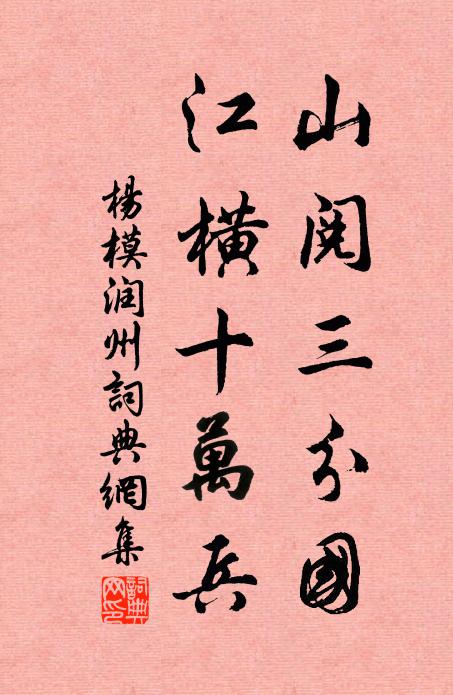 山閱三分國
江橫十萬兵
楊模润州詞典網集
詞典网印